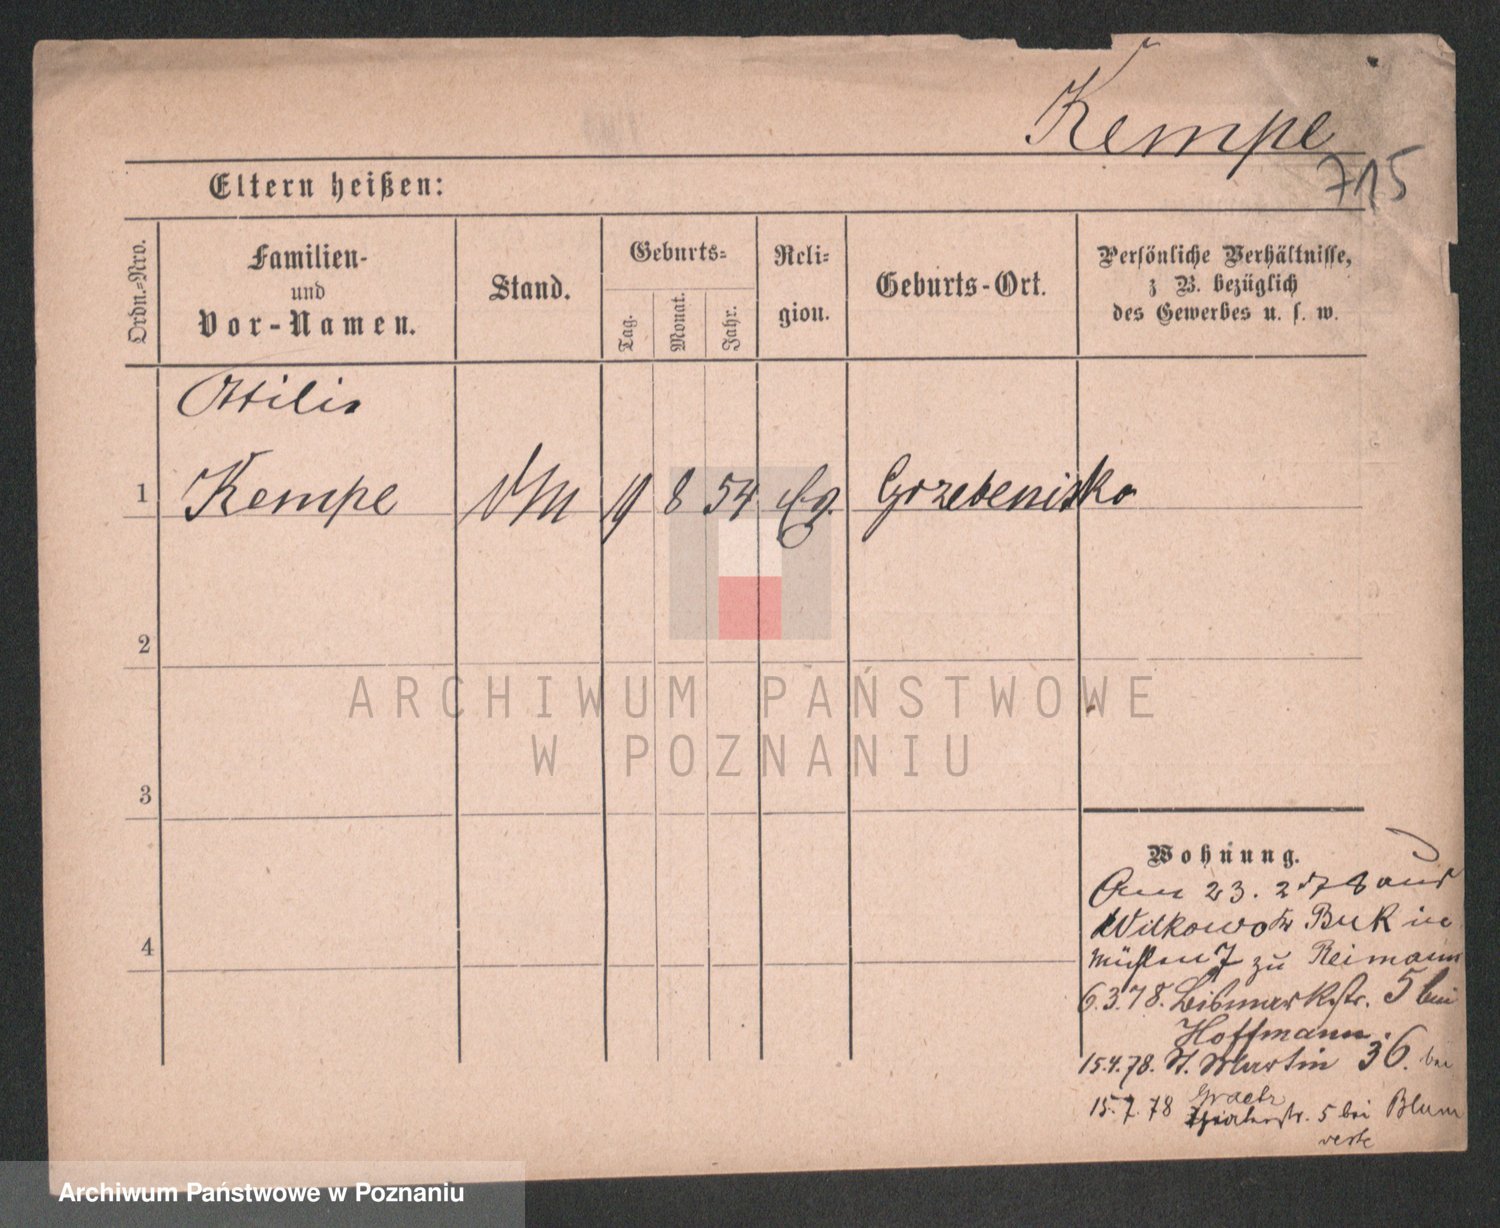 Kempe
715
Eltern heißen:
Ordn.-Nro.
Familien-
und
Vor-Namen.
Stand.
Geburts-
Tag.
Monat.
Jahr.
Reli-
gion.
Geburts-Ort.
Persönliche Verhältnisse,
z B. bezüglich
des Gewerbes u. s. w.
Ottilie
1 Kempe 19 8 54 Eg. Grzebenisko
2
ARCHIWUM PAŃSTWOWE
W POZNANIU
3
4
Wohnung.
23. 2 78 aus
Wilkowo Buk in
Mühlen 7 zu Reimann
6.3.78. Bismarkstr. 5 bei
Hoffmann.
15.4.78. St. Martin 36. bei
15.7.78 Graetz
5 bei Blum
Archiwum Państwowe w Poznaniu